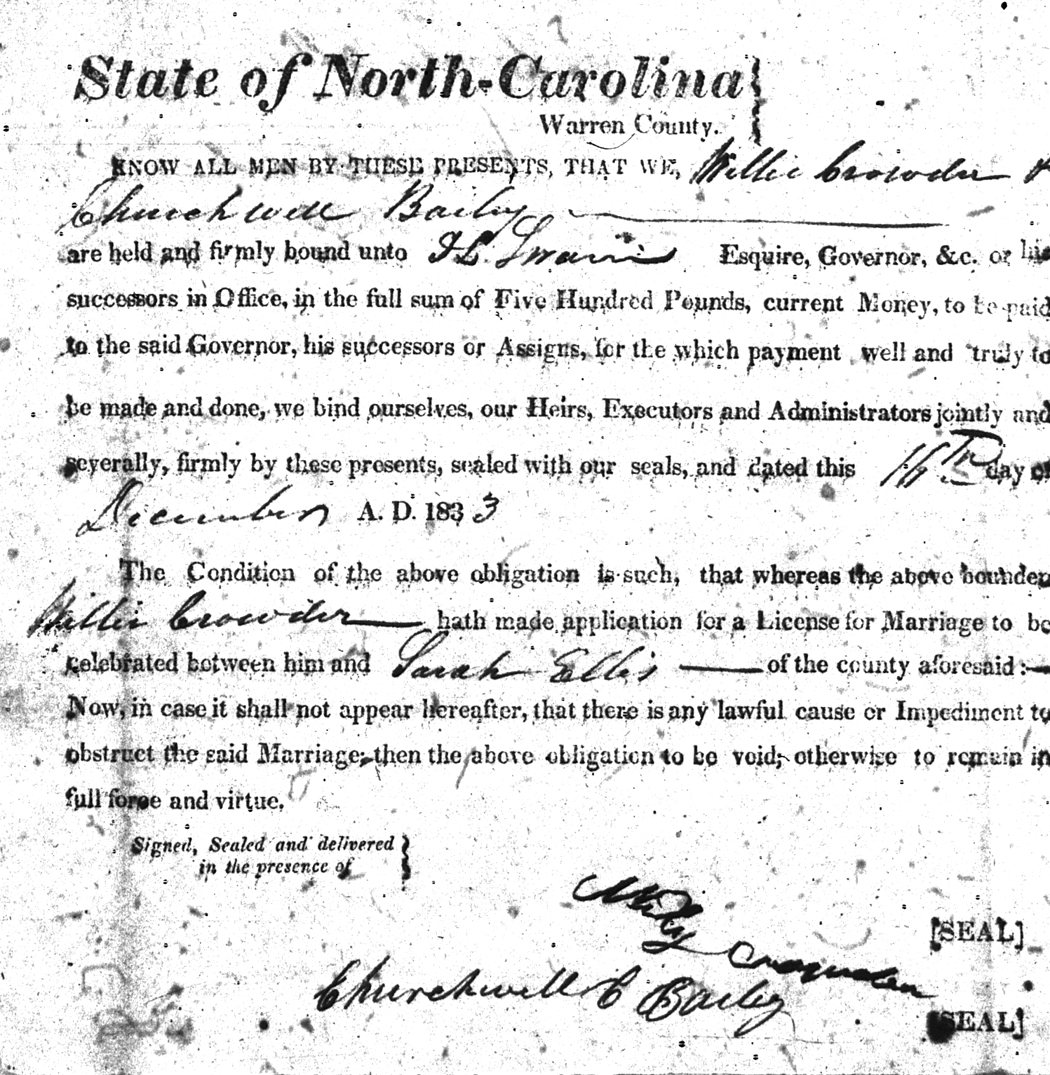 State of North-Carolina
Warren County.
KNOW ALL MEN BY THESE PRESENTS, THAT WE, Willie Crowder &
Churchwell Bailey
are held and firmly bound unto Swain Esquire, Governor, &c. or his
successors in Office, in the full sum of Five Hundred Pounds, current Money, to be paid
to the said Governor, his successors or Assigns, for the which payment well and truly to
be made and done, we bind ourselves, our Heirs, Executors and Administrators jointly and
severally, firmly by these presents, sealed with our seals, and dated this day of
December A. D. 1833
The Condition of the above obligation is such, that whereas the above bounden
Willie Crowder hath made application for a License for Marriage to be
celebrated between him and Sarah Ellis of the county aforesaid:
Now, in case it shall not appear hereafter, that there is any lawful cause or Impediment to
obstruct the said Marriage, then the above obligation to be void; otherwise to remain in
full force and virtue.
Signed, Sealed and delivered
in the presence of
[SEAL]
Churchwell C Bailey
[SEAL]